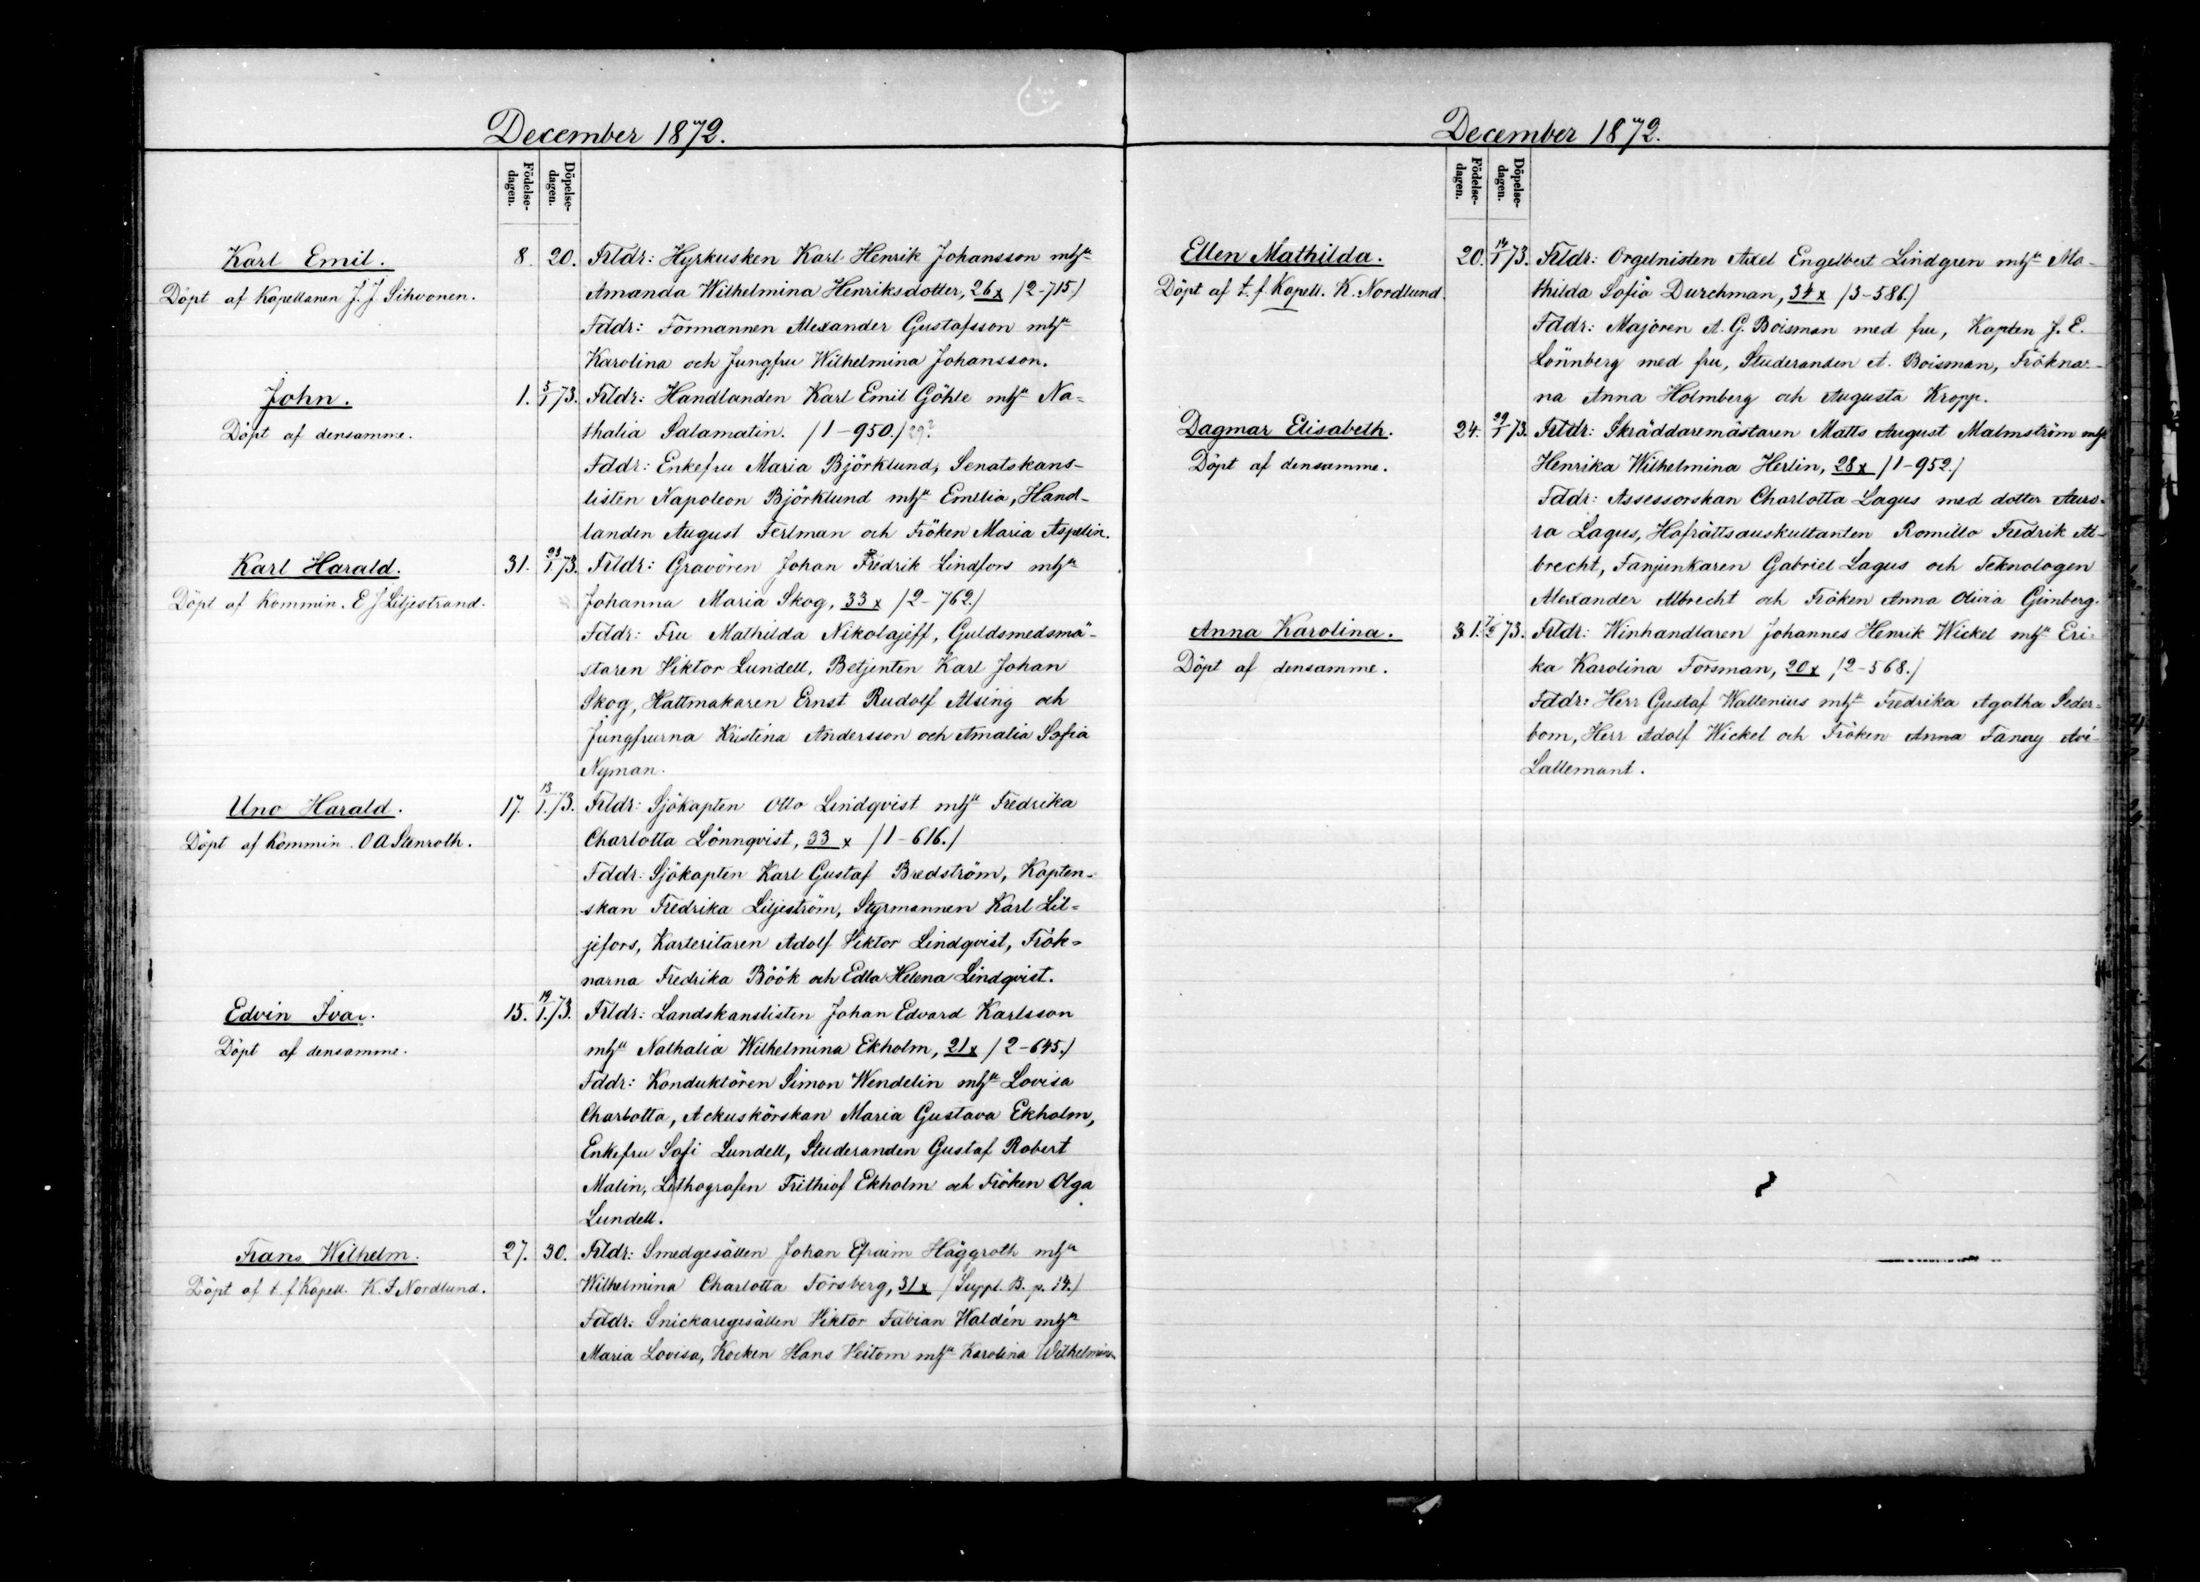 December 1872.
Födelse-
dagen.
Döpelse-
dagen.
Karl Emil. 8. 20. Frldr: Hyrkusken Karl Henrik Johansson mhu
Döpt af Kapellanen J. J. Sihvonen. Amanda Wilhelmina Henriksdotter, 26 x /2-715/
Fddr: Förmannen Alexander Gustafsson mhu
Karolina och Jungfru Wilhelmina Johansson.
John. 1. 5/1 73. Frldr: Handlanden Karl Emil Göhle mhu Na-
Döpt af densamme. thalia Salamatin. /1-950./ 29?
Fddr: Enkefru Maria Björklund, Senatskans-
listen Napoleon Björklund mhu Emilia, Hand-
landen August Ferlman och Fröken Maria Aspelin.
Karl Harald. 31. 23/1 73. Frldr: Gravören Johan Fredrik Lindfors mhu
Döpt af Kommin. E J Liljestrand. Johanna Maria Skog, 33 x /2-762./
Fddr: Fru Mathilda Nikolajeff, Guldsmedsmä-
staren Viktor Lundell, Betjenten Karl Johan
Skog, Hattmakaren Ernst Rudolf Alsing och
Jungfrurna Kristina Andersson och Amalia Sofia
Nyman.
Uno Harald. 17. 13/1. 73. Frldr: Sjökapten Otto Lindqvist mhu Fredrika
Döpt af Kommin. O A Stenroth. Charlotta Lönnqvist, 33 x /1-616./
Fddr: Sjökapten Karl Gustaf Bredström, Kapten-
skan Fredrika Liljeström, Styrmannen Karl Lil-
jefors, Karteritaren Adolf Viktor Lindqvist, Frök-
narna Fredrika Böök och Edla Helena Lindqvist.
Edvin Ivar. 15. 19/1. 73. Frldr: Landskanslisten Johan Edvard Karlsson
Döpt af densamme. mhu Nathalia Wilhelmina Ekholm, 21 x /2-645./
Fddr: Konduktören Simon Wendelin mhu Lovisa
Charlotta, Ackuskörskan Maria Gustava Ekholm,
Enkefru Sofi Lundell, Studeranden Gustaf Robert
Malin, Lithografen Frithiof Ekholm och Fröken Olga
Lundell.
Frans Wilhelm. 27. 30. Frldr: Smedgesällen Johan Efraim Häggroth mhu
Döpt af t. f Kapell. K. F. Nordlund. Wilhelmina Charlotta Forsberg, 31 x /Suppl. B. p. 14./
Fddr: Snickaregesällen Viktor Fabian Waldén mhu
Maria Lovisa, Kocken Hans Veitom mhu Karolina Wilhelmina
December 1872.
Födelse-
dagen.
Döpelse-
dagen.
Ellen Mathilda. 20. 14/1 73. Frldr: Orgelnisten Axel Engelbert Lindgren mhu Ma-
Döpt af t. f Kapell. K. Nordlund. thilda Sofia Durchman, 34 x /3-586./
Fddr: Majoren A. G. Boisman med fru, Kapten J. E.
Lönnberg med fru, Studeranden A. Boisman, Fröknar-
na Anna Holmberg och Augusta Kropp.
Dagmar Elisabeth. 24. 29/1 73. Frldr: Skräddaremästaren Matts August Malmström mhu
Döpt af densamme. Henrika Wilhelmina Herlin, 28 x /1-952./
Fddr: Assessorskan Charlotta Lagus med dotter Auro-
ra Lagus, Hofrättsauskultanten Romillo Fredrik Al-
brecht, Fanjunkaren Gabriel Lagus och Teknologen
Alexander Albrecht och Fröken Anna Olivia Gimberg.
Anna Karolina. 31. 7/2 73. Frldr: Winhandlaren Johannes Henrik Wickel mhu Eri-
Döpt af densamme. ka Karolina Forsman, 20 x /2-568./
Fddr: Herr Gustaf Wallenius mhu Fredrika Agatha Seder-
bom, Herr Adolf Wickel och Fröken Anna Fanny Avé-
Lallemant.